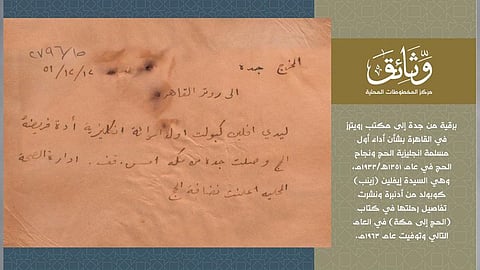 المخرج جدة
٥١/١٢/١٧
الى روتر القاهرة
ليدي افلين كبولت اول امرأة انكليزية أدة فريضة
الحج وصلت جدة من مكه امس . قف . ادارة الصحة
اعلنت نضافة الحج
وثَائِق
مركز المخطوطات المحلية
برقية من جدة إلى مكتب رويترز
في القاهرة بشأن أداء أول
مسلمة انجليزية الحج ونجاح
الحج في عام ١٣٥١هـ/١٩٣٣م،
وهي السيدة إيفلين (زينب)
كوبولد من أدنبرة ونشرت
تفاصيل رحلتها في كتاب
(الحج إلى مكة) في العام
التالي وتوفيت عام ١٩٦٣م.